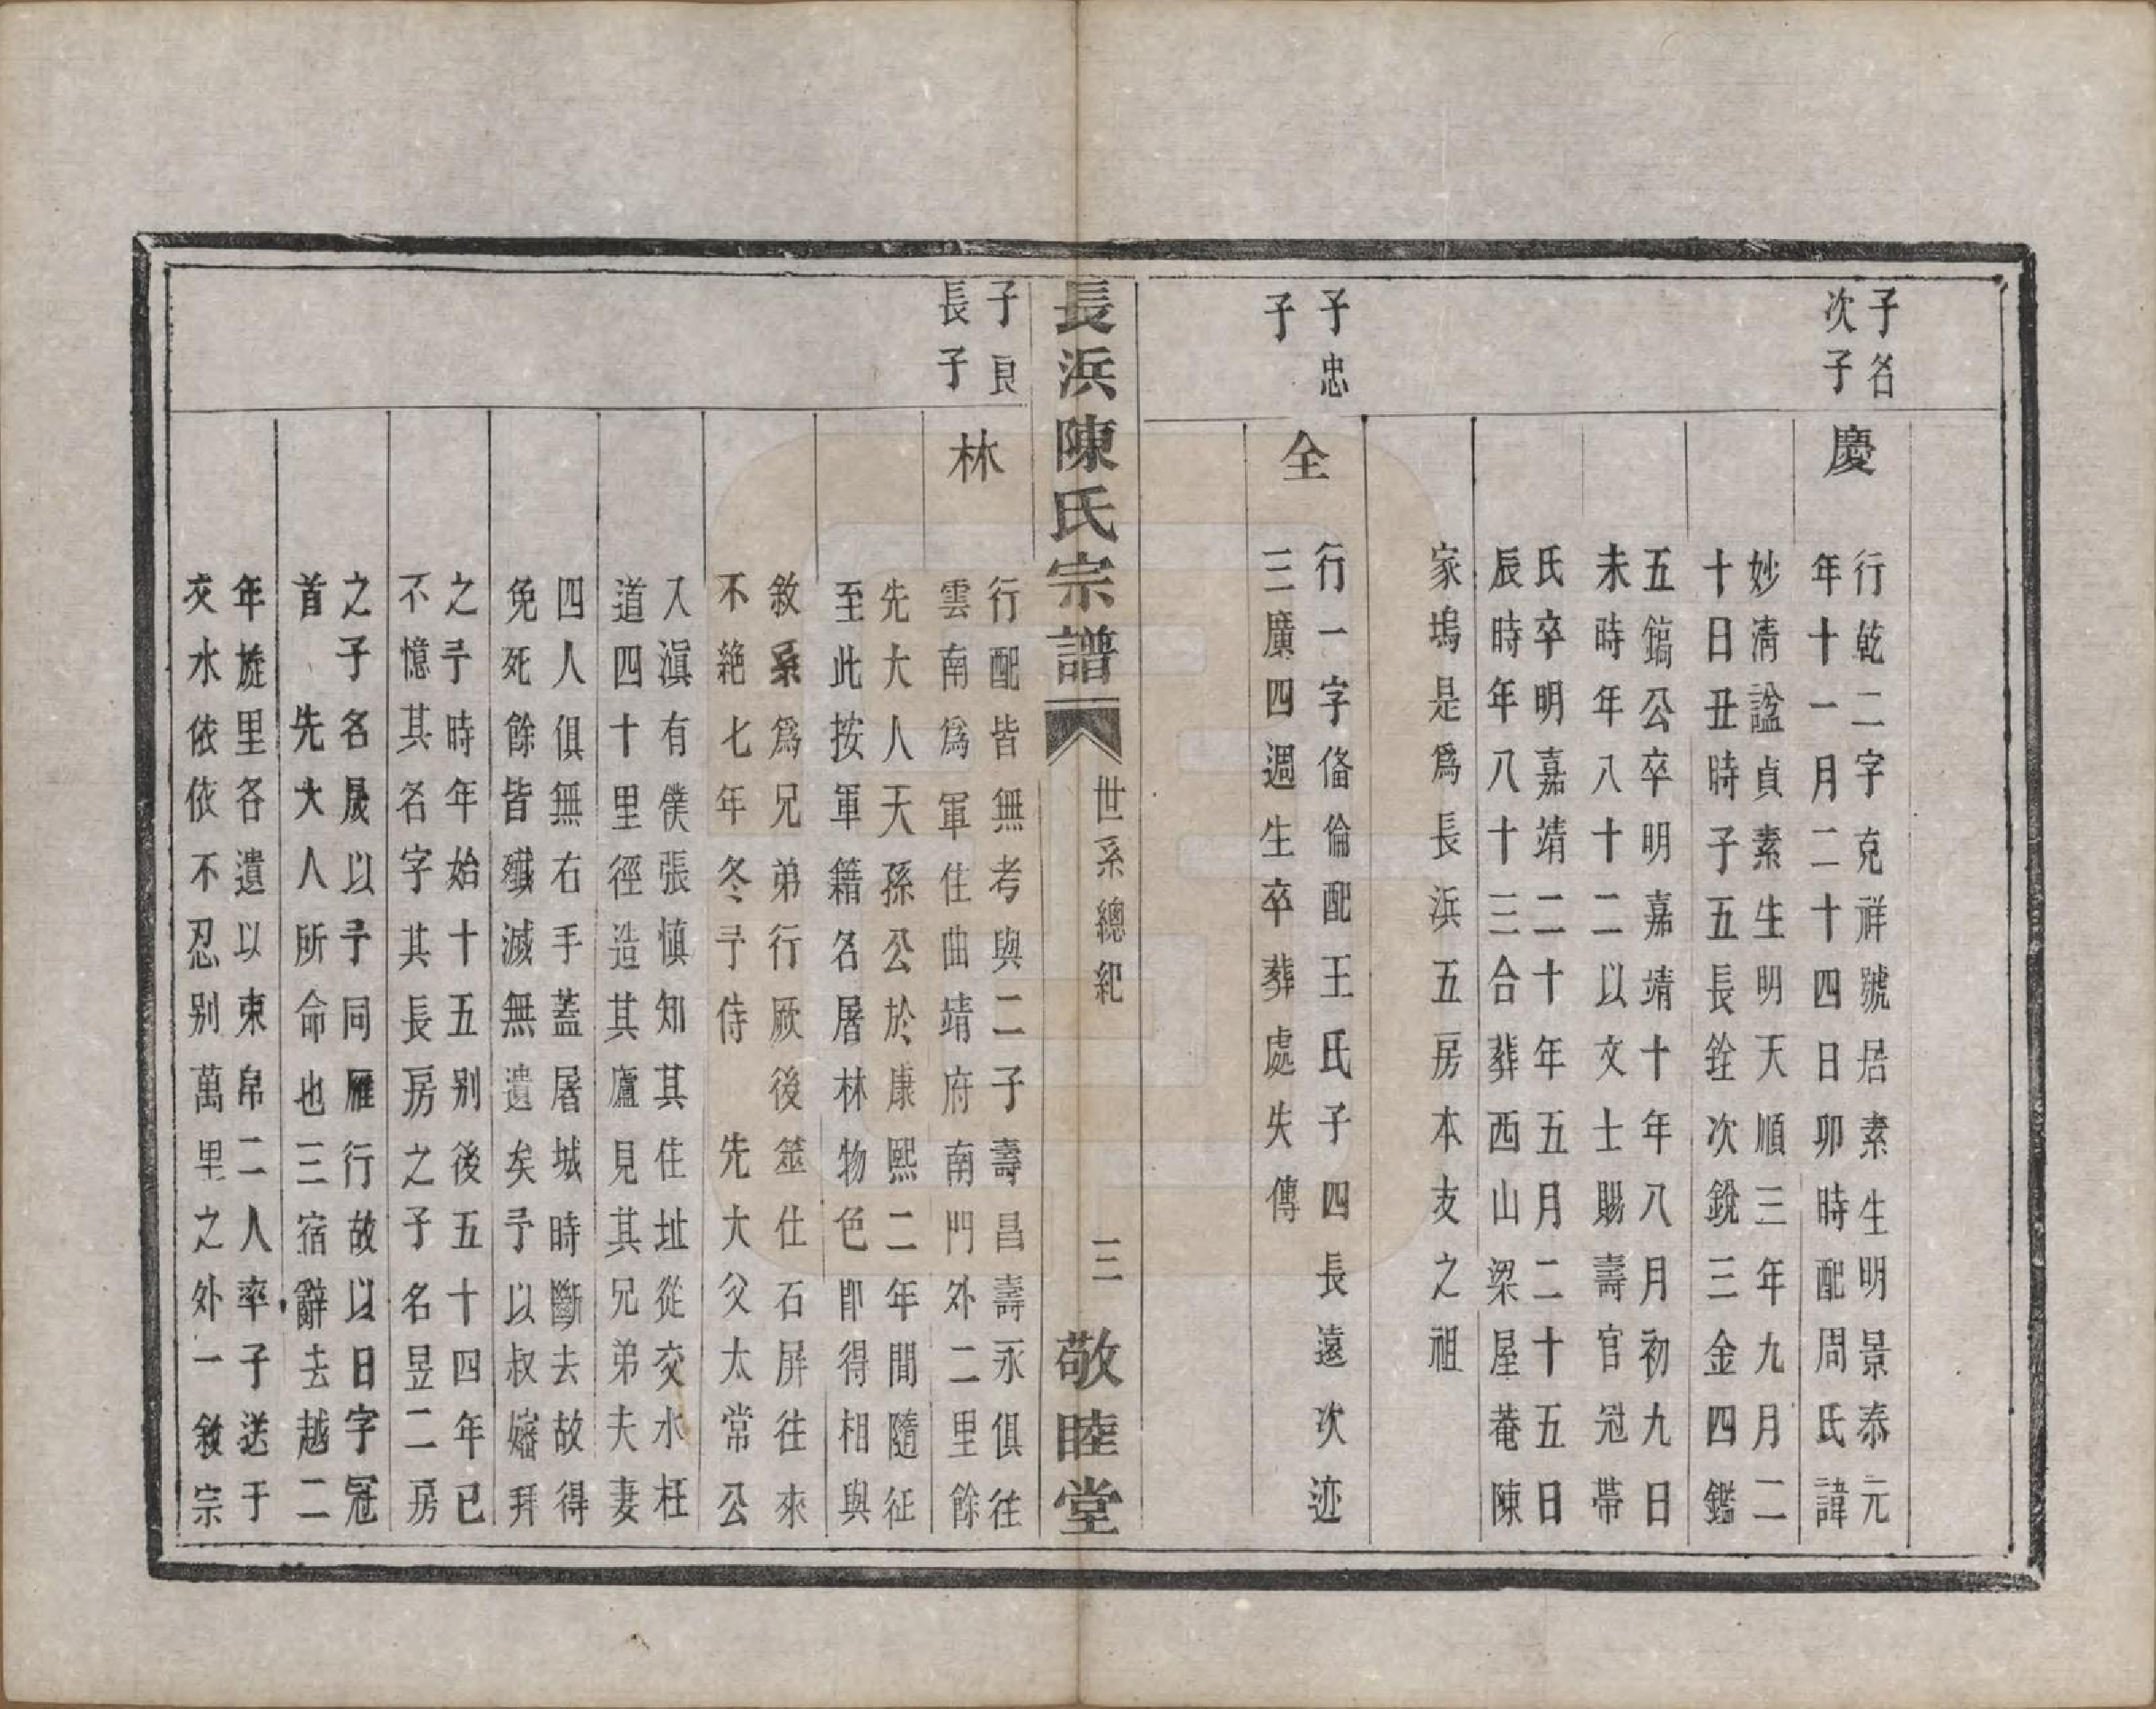 子名
次子
慶
行乾二字克祥號居素生明景泰元
年十一月二十四日卯時配周氏諱
妙清諡貞素生明天順三年九月二
十日丑時子五長銓次銳三金四鑑
五鎬公卒明嘉靖十年八月初九日
未時年八十二以文士賜壽官冠帶
氏卒明嘉靖二十年五月二十五日
辰時年八十三合葬西山梁屋菴陳
家塢是為長浜五房本支之祖
子忠
子
全
行一字俻倫配王氏子四長遠次迹
三廣四週生卒葬處失傳
長浜陳氏宗譜
世系總紀
三
敬睦堂
子良
長子
林
行配皆無考與二子壽昌壽永俱往
雲南為軍住曲靖府南門外二里餘
先大人天孫公於康熙二年間隨征
至此按軍籍名屠林物色即得相與
敘系為兄弟行厥後筮仕石屏往來
不絕七年冬予侍 先大父太常公
入滇有僕張慎知其住址從交水枉
道四十里徑造其廬見其兄弟夫妻
四人俱無右手蓋屠城時斷去故得
免死餘皆殲滅無遺矣予以叔嬸拜
之予時年始十五别後五十四年已
不憶其名字其長房之子名昱二房
之子名晟以予同雁行故以日字冠
首 先大人所命也三宿辭去越二
年旋里各遺以束帛二人率子送于
交水依依不忍别萬里之外一敘宗